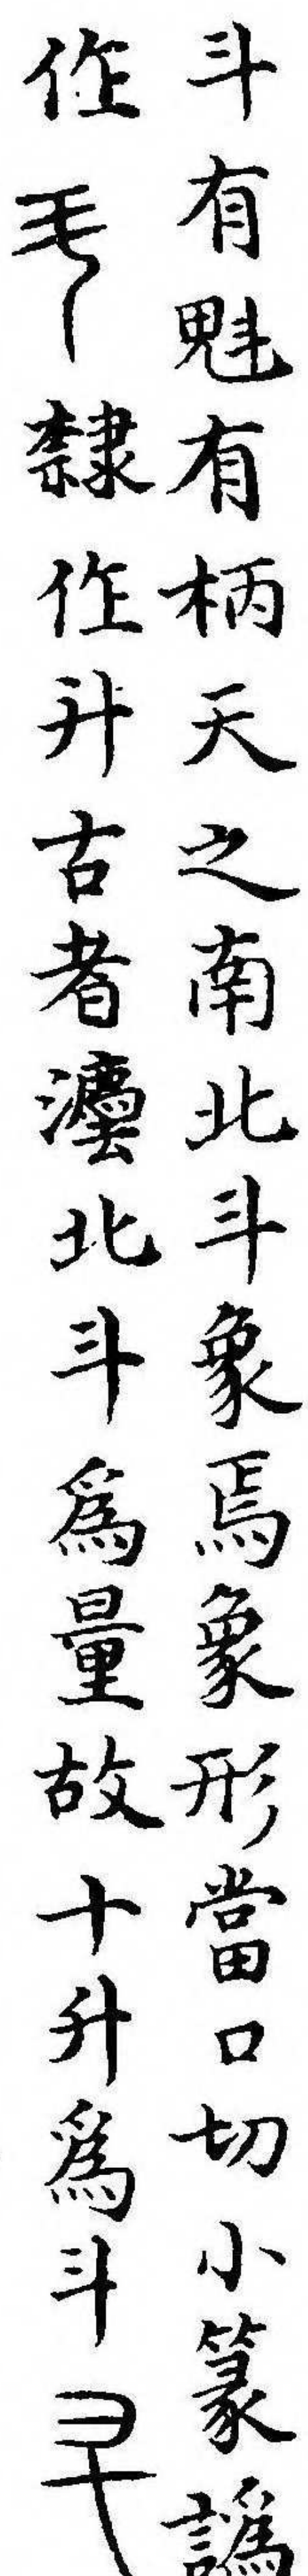 斗有魁有柄天之南北斗象焉象形當口切小篆譌
作隸作升古者灋北斗為量故十升為斗